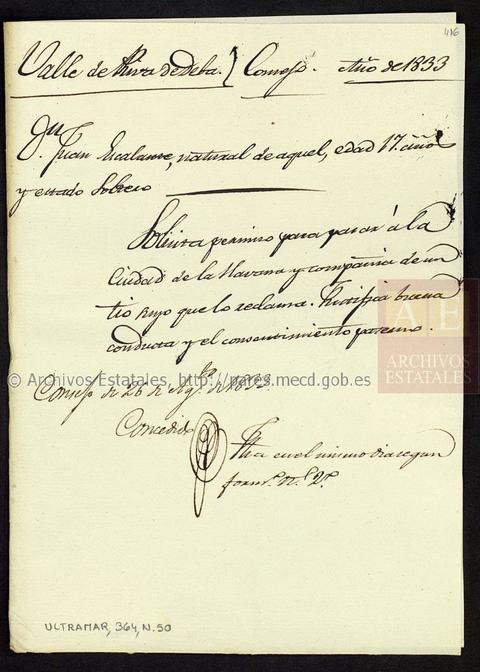 416
Valle de Riva de deba. } Consejo. Año de 1833
Dn. Juan Escalante, natural de aquel, edad 17. años
y estado Soltero
Solicita permiso para pasar á la
Ciudad de la Havana y compañia de un
tio suyo que lo reclama. Justifica buena
conducta y el consentimiento paterno.
A E
ARCHIVOS
ESTATALES
© Archivos Estatales, http://pares.mecd.gob.es
Consejo de 26 de Agto. de 1833
Concedido
Fha en el mismo dia segun
form.º n.º 2º
ULTRAMAR, 364, N.50